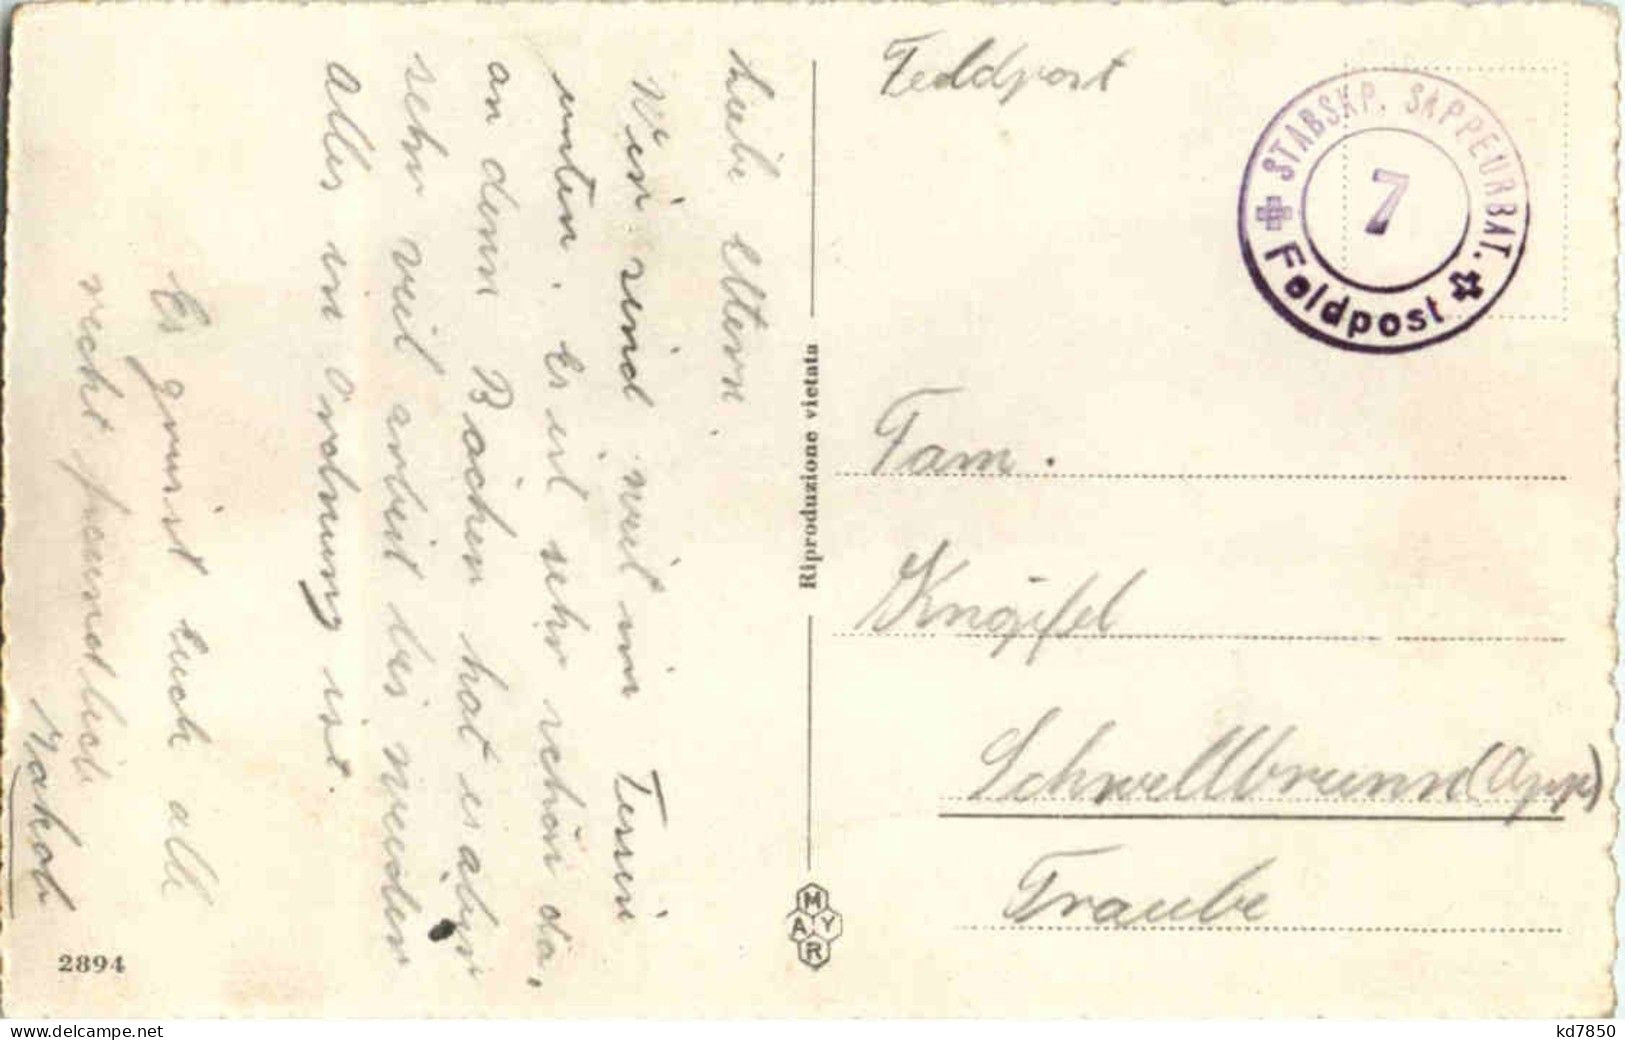 Liebe Eltern.
Wir sind weit im Tessin
unten. Es ist sehr schön da,
an denn Bächen hat es aber
sehr veil arbeit bis werden
Alles in Ordnung ist.
Es grüsst Euch all
recht freundlich
Jakob
2894
Riproduzione vietata
MAYR
Feldpost
STABSKP. SAPPEURBAT.
7
Feldpost
Fam.
Schwellbrunn (App)
Traube
delcampe.net
kd7850